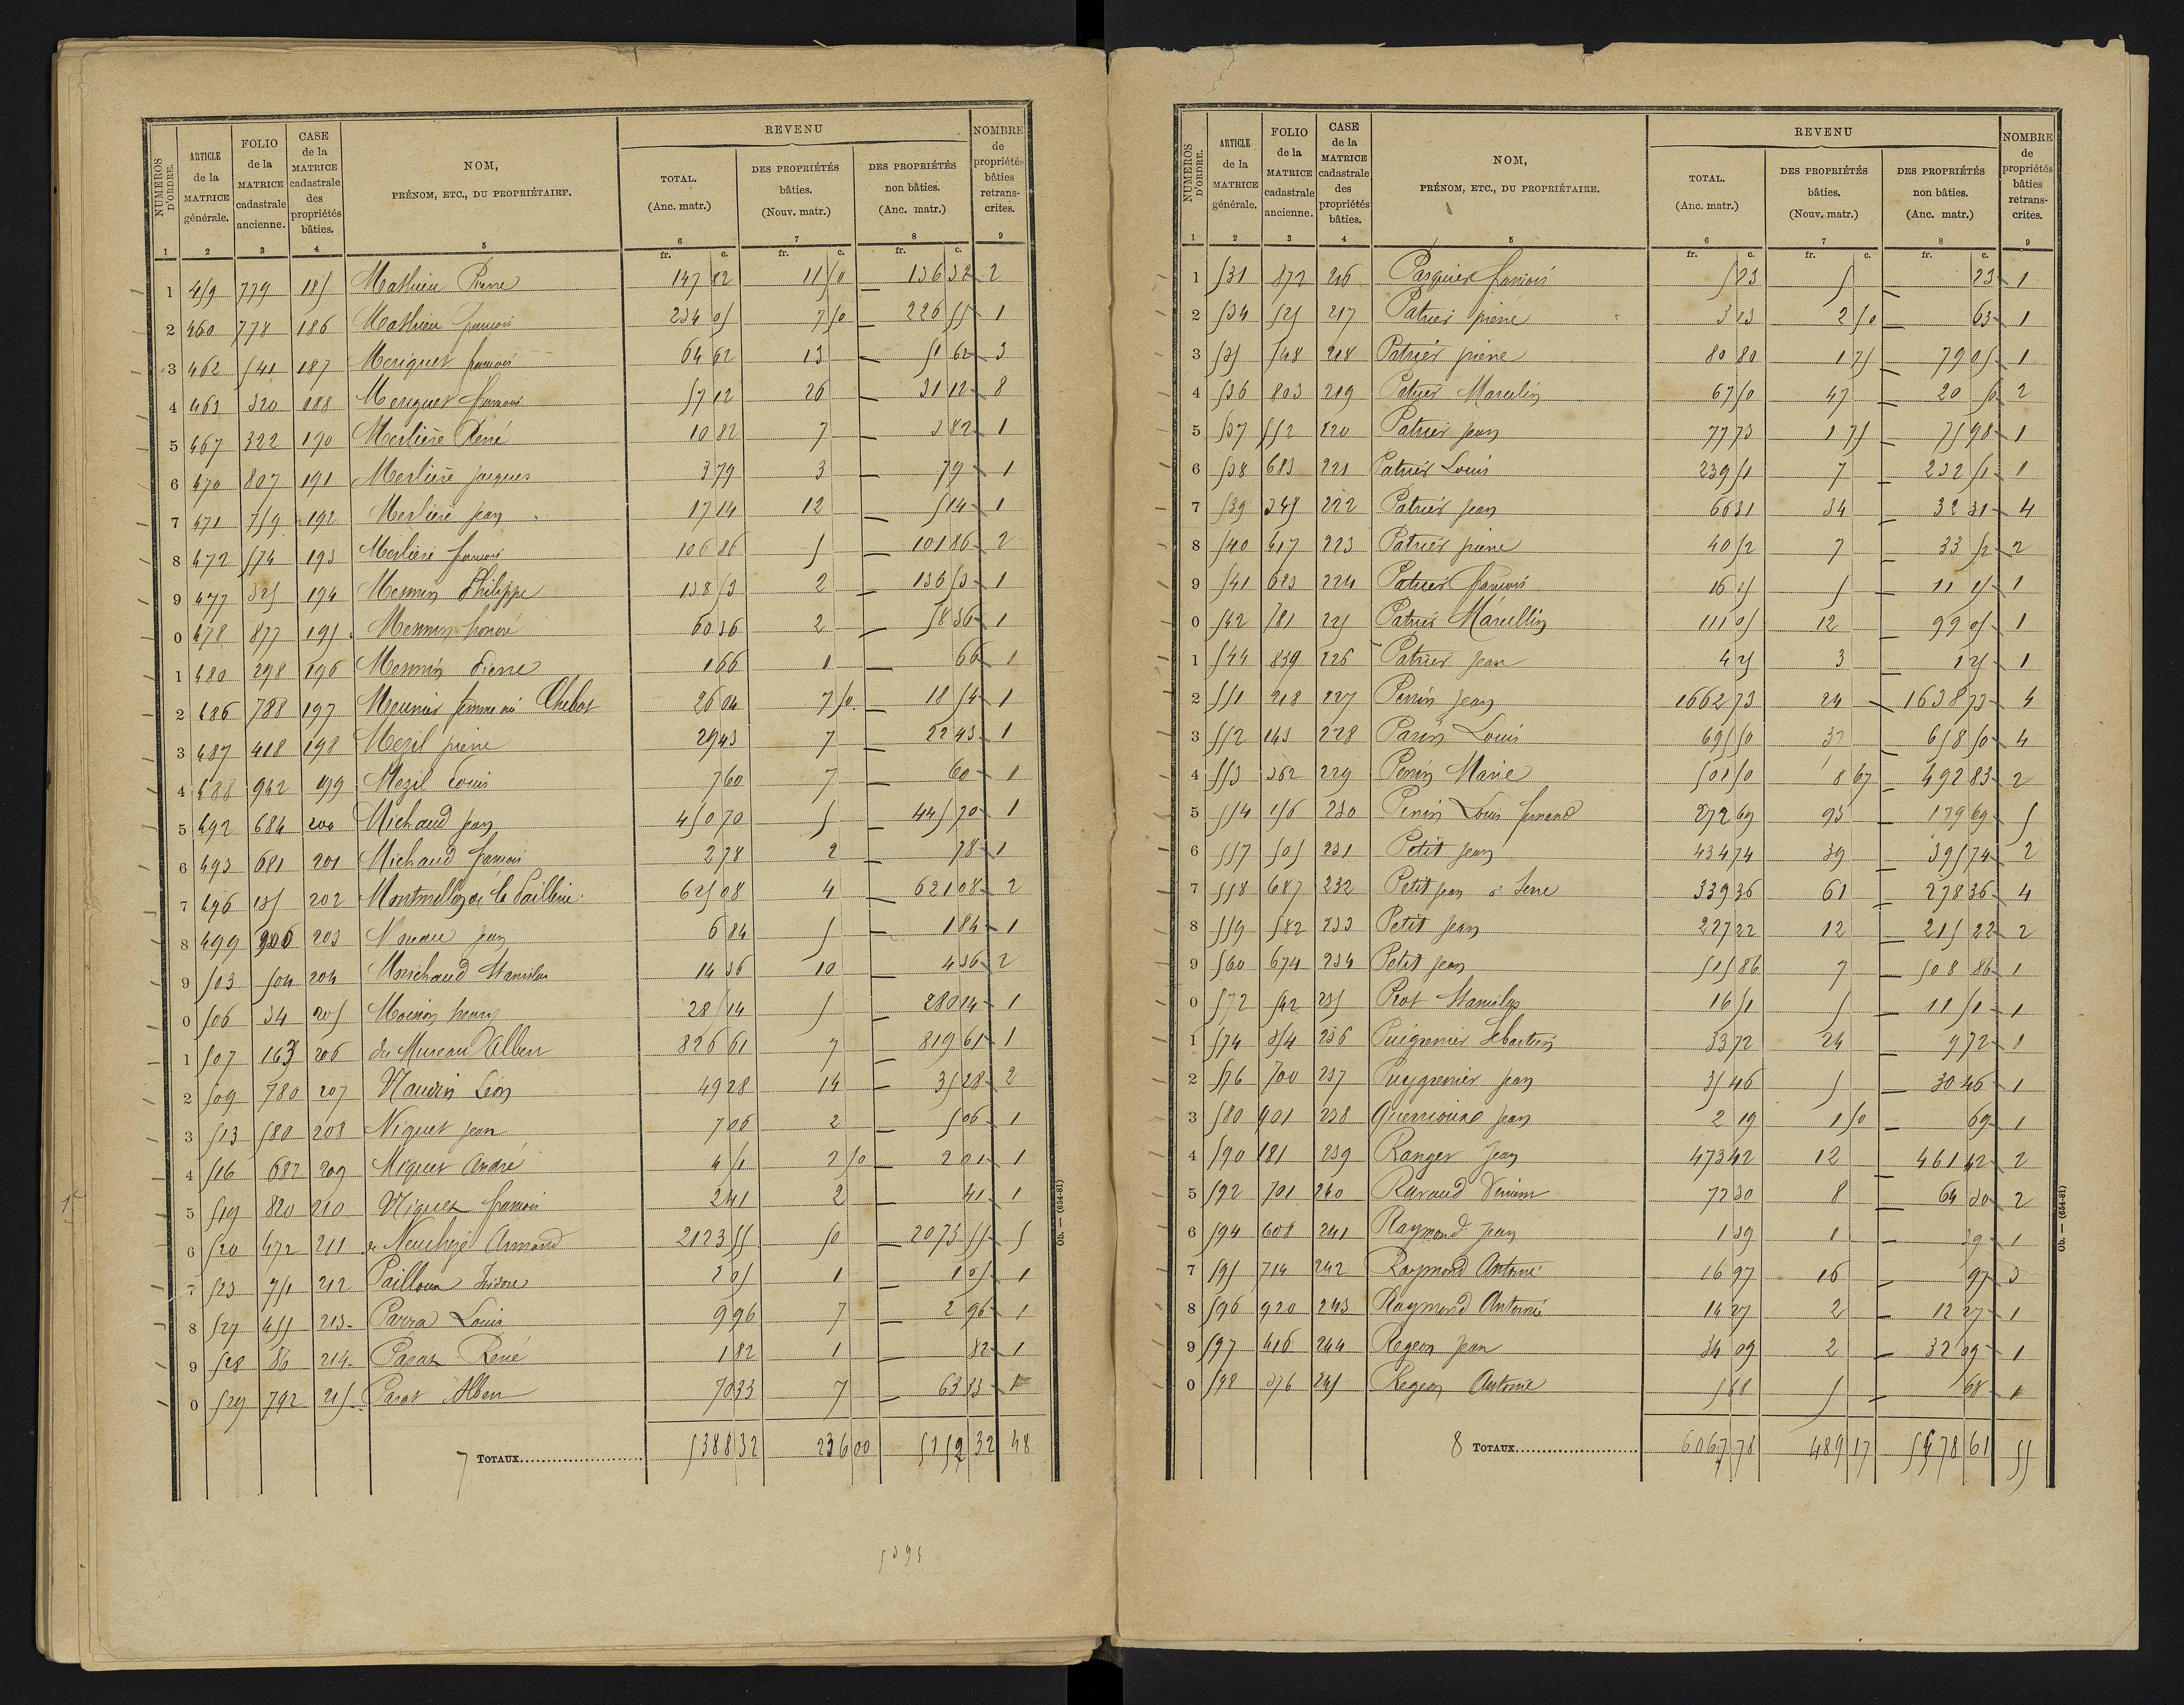 NUMEROS D'ORDRE. ARTICLE de la MATRICE générale. FOLIO de la MATRICE cadastrale ancienne. CASE de la MATRICE cadastrale des propriétés bâties. NOM, PRÉNOM, ETC., DU PROPRIÉTAIRE. REVENU TOTAL. (Anc. matr.) DES PROPRIÉTÉS bâties. (Nouv. matr.) DES PROPRIÉTÉS non bâties. (Anc. matr.) NOMBRE de propriétés bâties retranscrites.
1 2 3 4 5 6 7 8 9
fr. c. fr. c. fr. c.
1 459 779 185 Mathieu Pierre 147 82 11 50 136 32 2
2 460 778 186 Mathieu françois 234 05 7 50 226 55 1
3 462 541 187 Meriguet françois 64 62 13 51 62 3
4 463 320 188 Meriguet françois 57 12 26 31 12 8
5 467 322 190 Merlière René 10 82 7 3 82 1
6 470 807 191 Merlière jacques 3 79 3 79 1
7 471 759 192 Merlière jean 17 14 12 5 14 1
8 472 574 193 Merlière françois 106 86 5 101 86 2
9 477 325 194 Mesmin Philippe 138 53 2 136 53 1
0 478 877 195 Mesmin honoré 60 36 2 58 36 1
1 480 298 196 Mesmin Pierre 1 66 1 66 1
2 486 788 197 Meunier femme né Chebot 26 04 7 50 18 54 1
3 487 418 198 Mezil pierre 29 43 7 22 43 1
4 488 942 199 Mezil Louis 7 60 7 60 1
5 492 684 200 Michaud jean 450 70 5 445 70 1
6 493 681 201 Michaud françois 2 78 2 78 1
7 496 135 202 625 08 4 621 08 2
8 499 906 203 Moreau jean 6 84 5 1 84 1
9 503 504 204 Morichaud Stanislas 14 36 10 4 36 2
0 506 34 205 285 14 5 280 14 1
1 507 163 206 du Mureau Albert 826 61 7 819 61 1
2 509 780 207 Naudin Léon 49 28 14 35 28 2
3 513 580 208 Niquet jean 7 06 2 5 06 1
4 516 687 209 Niquet André 4 51 2 50 2 01 1
5 519 820 210 Niquet françois 2 41 2 41 1
6 520 472 211 de Neucheze Armand 2123 55 50 2073 55 5
7 523 751 212 Pailloux Isidore 2 05 1 1 05 1
8 527 455 213 Parra Louis 9 96 7 2 96 1
9 528 86 214 Parat René 1 82 1 82 1
0 529 792 215 Parat Albert 70 33 7 63 33 1
7 TOTAUX 5388 32 236 00 5152 32 48
Ob. — (654-81)
5395
NUMEROS D'ORDRE. ARTICLE de la MATRICE générale. FOLIO de la MATRICE cadastrale ancienne. CASE de la MATRICE cadastrale des propriétés bâties. NOM, PRÉNOM, ETC., DU PROPRIÉTAIRE. REVENU TOTAL. (Anc. matr.) DES PROPRIÉTÉS bâties. (Nouv. matr.) DES PROPRIÉTÉS non bâties. (Anc. matr.) NOMBRE de propriétés bâties retranscrites.
1 2 3 4 5 6 7 8 9
fr. c. fr. c. fr. c.
1 531 872 216 Pasquier françois 5 23 5 23 1
2 534 525 217 Patrier pierre 3 13 2 50 63 1
3 535 548 218 Patrier pierre 80 80 1 75 79 05 1
4 536 803 219 Patrier Marcelin 67 50 47 20 50 2
5 537 552 220 Patrier jean 77 73 1 75 75 98 1
6 538 683 221 Patrier Louis 239 51 7 232 51 1
7 539 345 222 Patrier jean 66 31 34 32 31 4
8 540 617 223 Patrier pierre 40 52 7 33 52 2
9 541 623 224 Patrier françois 16 15 5 11 15 1
0 542 781 225 Patrier Marcellin 111 05 12 99 05 1
1 544 839 226 Patrier jean 4 25 3 1 25 1
2 551 218 227 Perrin jean 1662 73 24 1638 73 4
3 552 143 228 Perrin Louis 695 50 37 658 50 4
4 553 362 229 Perrin Marie 501 50 8 67 492 83 2
5 554 156 230 Perrin Louis fernand 272 69 93 179 69 5
6 557 505 231 Petit jean 434 74 39 395 74 2
7 558 687 232 Petit jean 339 36 61 278 36 4
8 559 582 233 Petit jean 227 22 12 215 22 2
9 560 674 234 Petit jean 515 86 7 508 86 1
0 572 542 235 Prot Stanislas 16 51 5 11 51 1
1 574 354 236 Puigrenier Sebastien 33 72 24 9 72 1
2 576 700 237 Puygrenier jean 35 46 5 30 46 1
3 580 901 238 jean 2 19 1 50 69 1
4 590 181 239 Ranger Jean 473 42 12 461 42 2
5 592 701 240 Ravaud 72 30 8 64 30 2
6 594 608 241 Raymond Jean 1 39 1 39 1
7 595 714 242 Raymond Antoine 16 97 16 97 3
8 596 920 243 Raymond Antoine 14 27 2 12 27 1
9 597 416 244 Regeon jean 34 09 2 32 09 1
0 598 376 245 Regeon Antoine 5 68 5 68 1
8 TOTAUX 6067 78 489 17 5578 61 55
Ob. — (654-81)